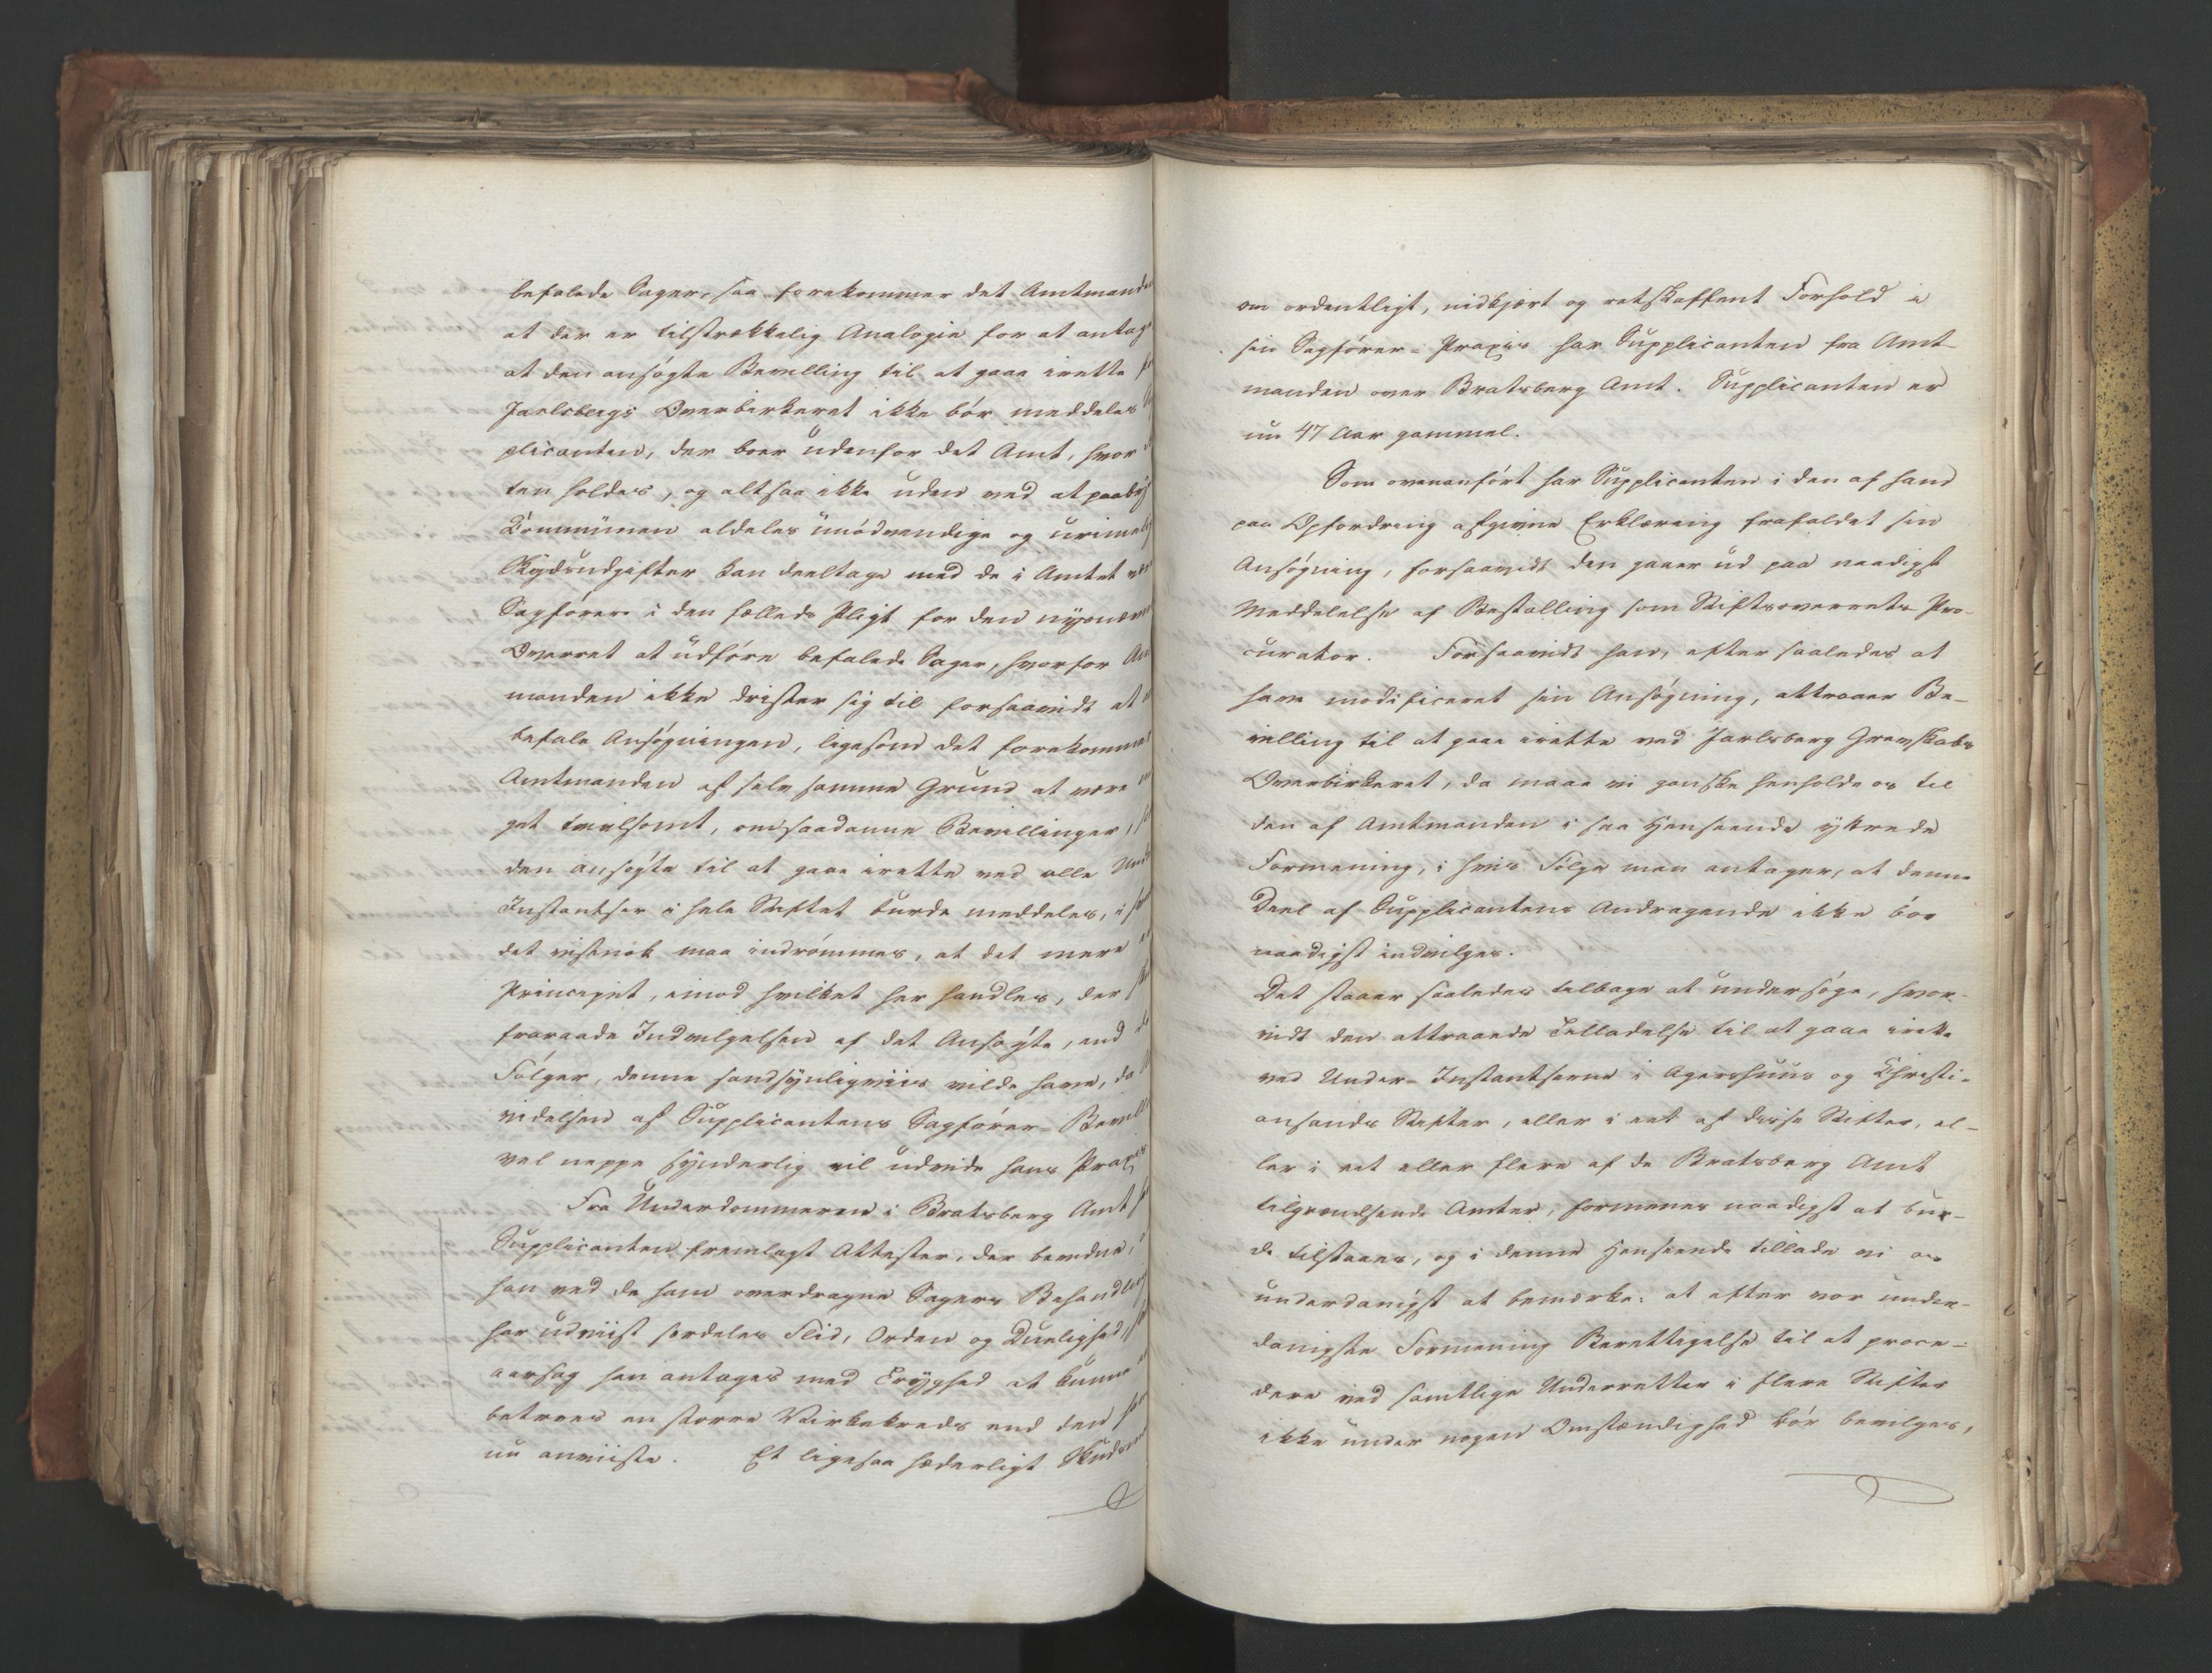 befalede Sager, saa forekommer det Amtmanden
at der er tilstrækkelig Analogie for at antage
at den ansøgte Bevilling til at gaae irette
Jarlsbergs Overbirkeret ikke bør meddeles
plicanten, der boer udenfor det Amt, hvor
ten holdes, og altsaa ikke uden ved at paa
Communen aldeles unødvendige og urimelig
Skydsudgifter kan deeltage med de i Amtet
Sagførere i den fælleds Pligt for den nysnævn
Overret at udføre befalede Sager, hvorfor
manden ikke drister sig til forsaavidt at
befale Ansøgningen, ligesom det forekommer
Amtmanden af selv samme Grund at være
get tvivlsomt, om saadanne Bevillinger,
den ansøgte til at gaae irette ved alle Under
Instantser i hele Stiftet burde meddeles, i
det vistnok maa indrømmes, at det mere
Princepet, imod hvilket her handles, der
fraraade Indvilgelsen af det Ansøgte, end
Følger, denne sandsynligviis vilde have, da
videlsen af Supplicantens Sagfører-Bevill
vel neppe synderlig vil udvide hans Praxis
Fra Underdommeren i Bratsberg Amt
Supplicanten fremlagt Attester, der bevidne,
han ved de ham overdragne Sagers Behandling
har udviist særdeles Flid, Orden og Duelighed,
aarsag han antages med Tryghed at kunne
betroes en større Virkekreds end den
nu anviiste. Et ligesaa hæderligt Skudsmaal
om ordentligt, nidkjært og retskaffent Forhold i
sin Sagfører-Praxis har Supplicanten fra Amt
manden over Bratsberg Amt. Supplicanten er
nu 47 Aar gammel.
Som ovenanført har Supplicanten i den af ham
paa Opfordring afgivne Erklæring frafaldet sin
Ansøgning, forsaavidt den gaaer ud paa naadigst
Meddelelse af Bestalling som Stiftsoverrets-Pro-
curator. Forsaavidt han, efter saaledes at
have modificeret sin Ansøgning, attraaer Be-
villing til at gaae irette ved Jarlsberg Grevskabs
Overbirkeret, da maae vi ganske henholde os til
den af Amtmanden i saa Henseende yttrede
Formening, i hvis Følge man antager, at denne
Deel af Supplicantens Andragende ikke bør
naadigst indvilges.
Det staaer saaledes tilbage at undersøge, hvor-
vidt den attraaede Tilladelse til at gaae irette
ved Under-Instantserne i Agershuus og Christi-
ansands Stifter, eller i eet af disse Stifter, el-
ler i eet eller flere af de Bratsberg Amt
tilgrændsende Amter, formenes naadigst at bur-
de tilstaaes, og i denne Henseende tillade vi os
underdanigst at bemærke: at efter vor under-
danigste Formening Berettigelse til at proce-
dere ved samtlige Underretter i flere Stifter
ikke under nogen Omstændighed bør bevilges,